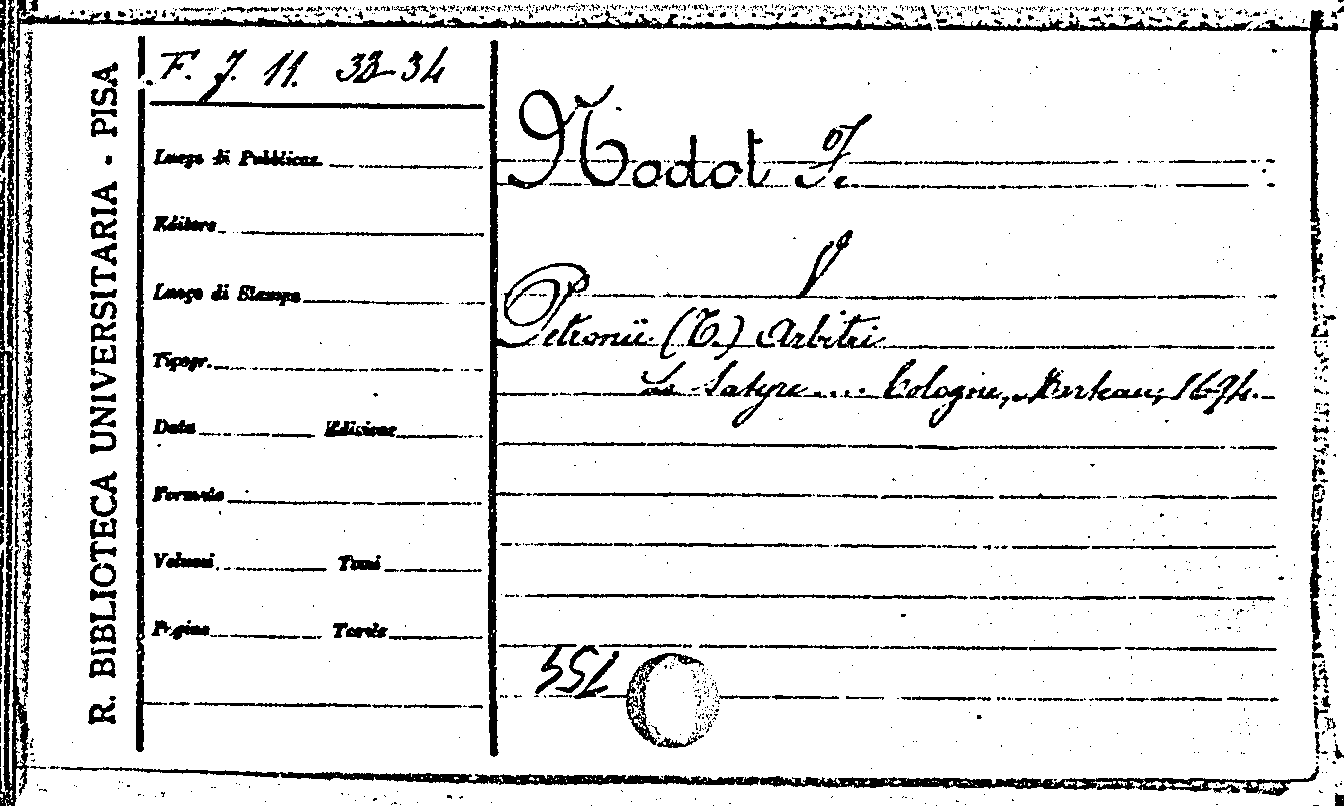 R. BIBLIOTECA UNIVERSITARIA - PISA
F. J. 11. 33-34
Luogo di Pubblicaz.
Editore
Luogo di Stampa
Tipogr.
Data Edizione
Formato
Volumi Tomi
Pagine Tavole
Nodot F.
V
Petronii (T.) Arbitri
La Satyre .... Cologne, Marteau, 1694.